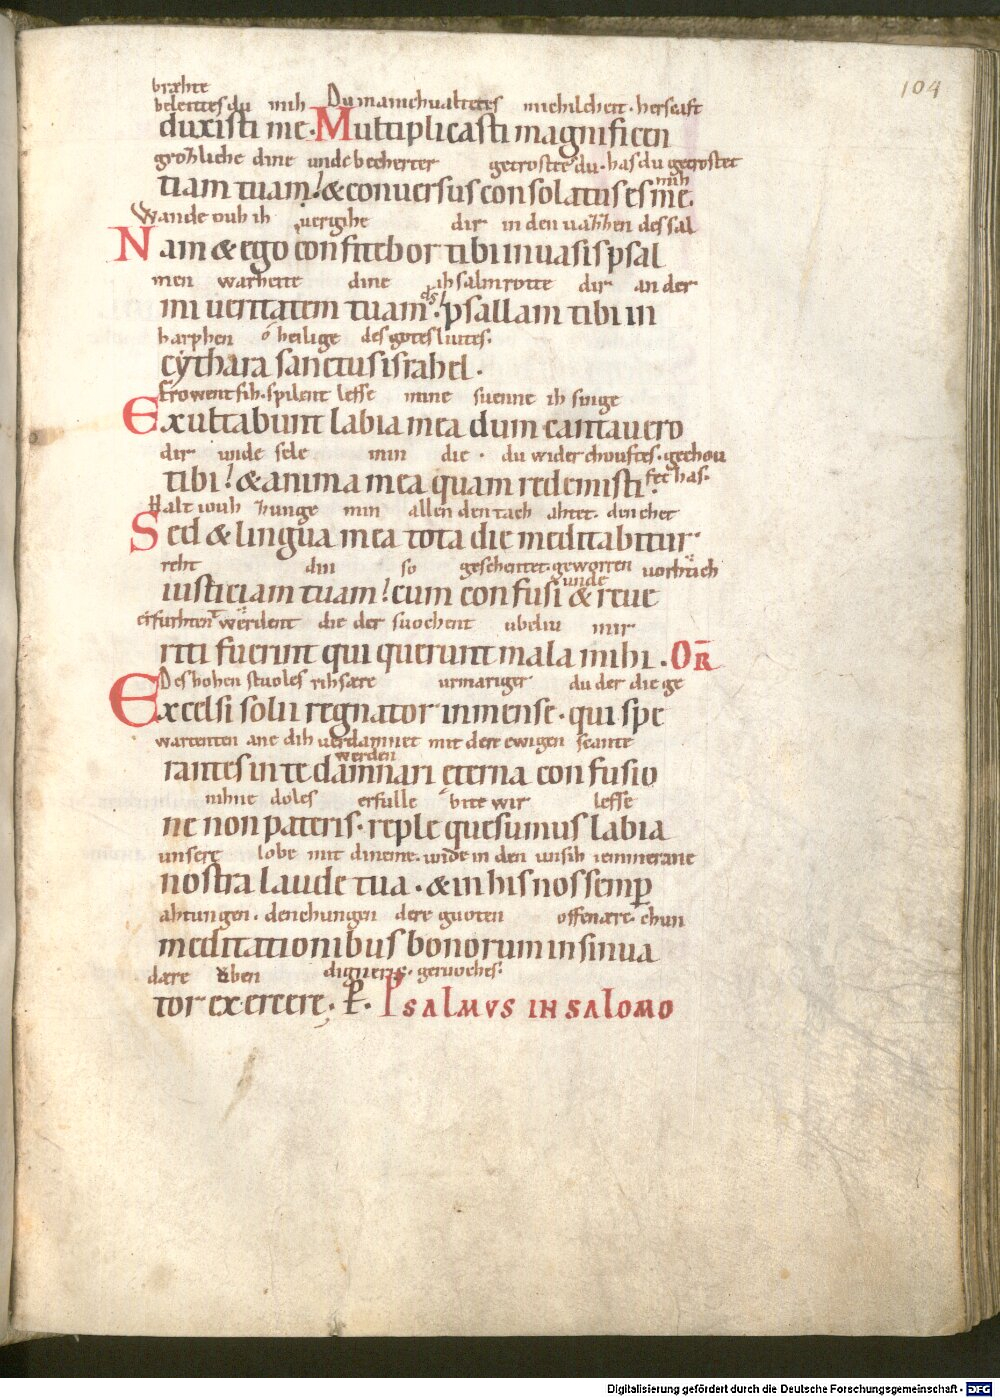 104
bræhte
beleittes du mih Du manichualtetes michilcheit · herscaft
duxisti me · Multiplicasti magnificen
grozliche dine unde becherter getrostest du · has du getrostet
mih
tiam tuam! & conuersus consolatus es me.
Wande ouh ih uergihe dir in den uazzen des sal
Nam & ego confitebor tibi in uasis psal
men warheite dine ih salmrotte dir an der
mi ueritatem tuam ds! psallam tibi in
harphen o heilige des gotes liuttes.
cythara sanctus israhel .
Erowent sih · spilent leffse mine suenne ih singe
Exultabunt labia mea dum cantauero
dir unde sele min die · du widerchouftes · gechou
tibi! & anima mea quam redemisti.
fet has.
Halt ouh zunge min allen den tach ahtet . denchet
Sed & lingua mea tota die meditabitur
reht din so geschentet · geworren unde uorhtich
iusticiam tuam! cum confusi & reue
erfurhten werdent die der suochent ubeliu mir
riti fuerint qui querunt mala mihi . OR
Des hohen stuoles rihsære urmariger du der die ge
Excelsi solii regnator inmense · qui spe
wartenten ane dih uerdamnet mit dere ewigen scante
werden
rantes in te damnari eterna confusio
nihne doles erfulle bite wir leffse
ne non pateris · reple quesumus labia
unsere lobe mit dineme · unde in den unsih iemmerane
nostra laude tua . & in his nos semp
ahtungen . denchungen dere guoten offenære · chun
meditationibus bonorum insinua
dære uben digneris · geruoches:
tor exercere . P. PSALMVS IN SALOMO
Digitalisierung gefördert durch die Deutsche Forschungsgemeinschaft - DFG